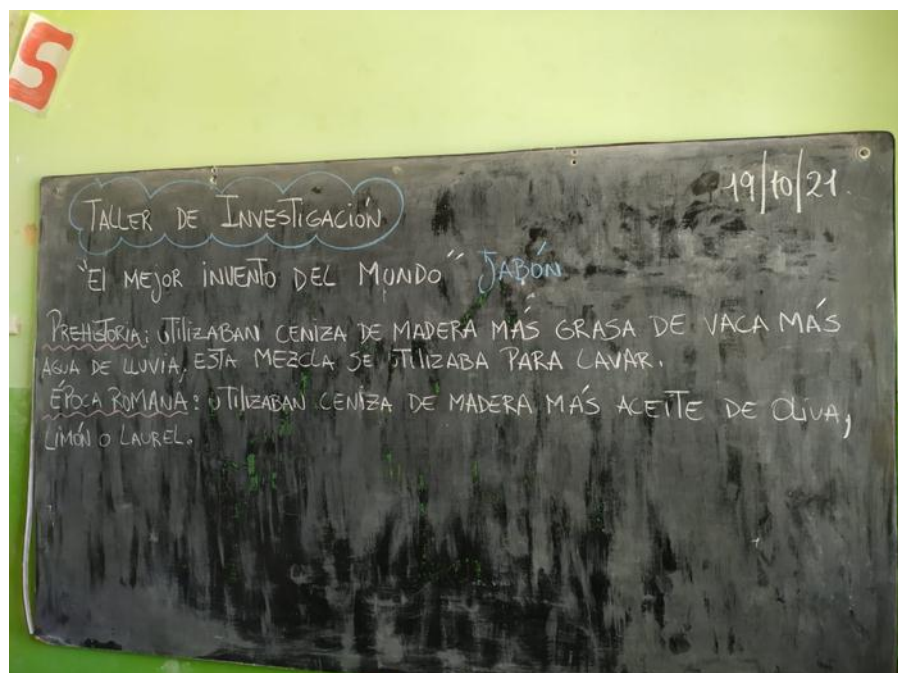 S
19/10/21.
TALLER DE INVESTIGACIÓN
"El MEJOR INVENTO DEL MUNDO" JABÓN
PREHISTORIA: UTILIZABAN CENIZA DE MADERA MÁS GRASA DE VACA MÁS
AGUA DE LLUVIA, ESTA MEZCLA SE UTILIZABA PARA LAVAR.
ÉPOCA ROMANA: UTILIZABAN CENIZA DE MADERA MÁS ACEITE DE OLIVA,
LIMÓN O LAUREL.